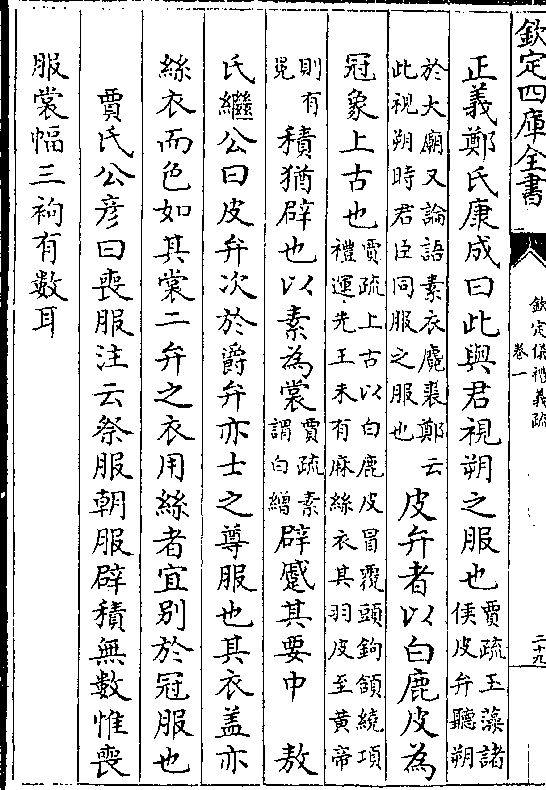 欽定四庫全書
欽定儀禮義疏
卷一
二十九
正義鄭氏康成曰此與君視朔之服也
賈疏玉藻諸
侯皮弁聽朔
於大廟又論語素衣麑裘鄭云
此視朔時君臣同服之服也
皮弁者以白鹿皮為
冠象上古也
賈疏上古以白鹿皮冒覆頭鉤頷繞項
禮運先王未有麻絲衣其羽皮至黃帝
則有
冕
積猶辟也以素為裳
賈疏素
謂白繒
辟蹙其要中 敖
氏繼公曰皮弁次於爵弁亦士之尊服也其衣盖亦
絲衣而色如其裳二弁之衣用絲者宜别於冠服也
賈氏公彦曰喪服注云祭服朝服辟積無數惟喪
服裳幅三袧有数耳